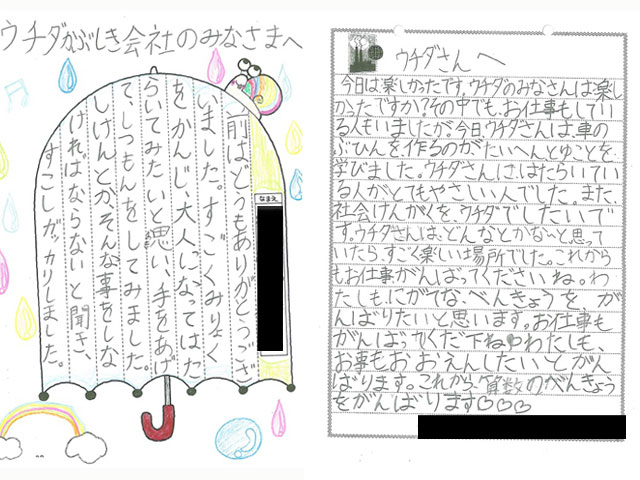 ウチダかぶしき会社のみなさまへ
前はどうもありがとうござ
いました。すごくみりょく
をかんじ、大人になってはた
らいてみたいと思い、手をあげ
て、しつもんをしてみました。
しけんとか、そんな事をしな
ければならないと聞き、
すこしガッカリしました。
なまえ
ウチダさんへ
今日は楽しかったです。ウチダのみなさんは楽し
かったですか？その中でも、お仕事もしてい
る人もいましたが、今日、ウチダさんは、車の
ぶひんを作るのがたいへんとゆことを
学びました。ウチダさんに、はたらいてい
る人がとてもやさしい人でした。また、
社会けんがくを、ウチダでしたいで
す。ウチダさんは、どんなとかな～と思って
いたら、すごく楽しい場所でした。これから
もお仕事がんばってくださいね。わ
たしも、にがてな、べんきょうを が
んばりたいと思います。お仕事も
がんばってくだ下ねわたしも、
お事もおおえんしたいとがん
ばります。これから、算数のがんきょう
をがんばります♡♡♡